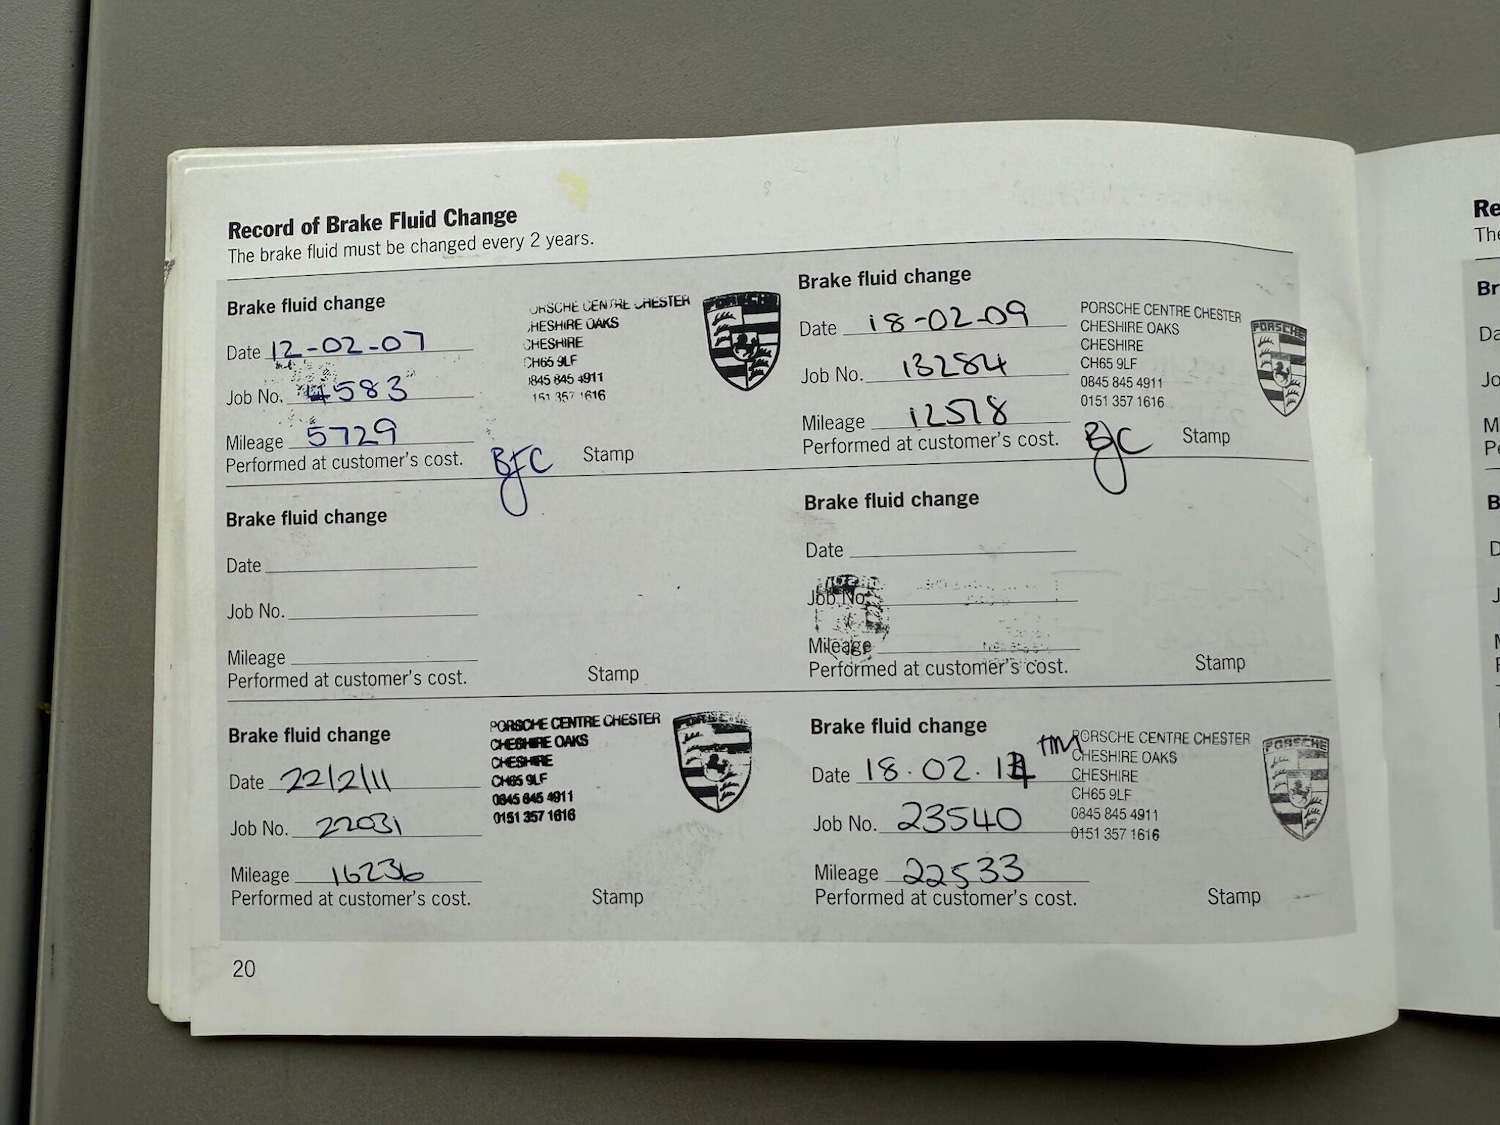 Record of Brake Fluid Change
The brake fluid must be changed every 2 years.
Brake fluid change
Date 12-02-07
Job No. 4583
Mileage 5729
Performed at customer's cost.
CENTRE CHESTER
OAKS
CHESHIRE
CH65 9LF
845 4911
PORSCHE
BJC
Stamp
Brake fluid change
Date 18-02-09
Job No. 13284
Mileage 12578
Performed at customer's cost.
PORSCHE CENTRE CHESTER
CHESHIRE OAKS
CHESHIRE
CH65 9LF
0845 845 4911
0151 357 1616
PORSCHE
BJC
Stamp
Brake fluid change
Date
Job No.
Mileage
Performed at customer's cost.
Stamp
Brake fluid change
Date
Job No.
Mileage
Performed at customer's cost.
Stamp
Brake fluid change
Date 22/2/11
Job No. 22031
Mileage 16236
Performed at customer's cost.
PORSCHE CENTRE CHESTER
CHESHIRE OAKS
CHESHIRE
CH65 9LF
0845 845 4911
0151 357 1616
Stamp
Brake fluid change
Date 18.02.
Job No. 23540
Mileage 22533
Performed at customer's cost.
PORSCHE CENTRE CHESTER
CHESHIRE OAKS
CHESHIRE
CH65 9LF
0845 845 4911
0151 357 1616
PORSCHE
Stamp
20